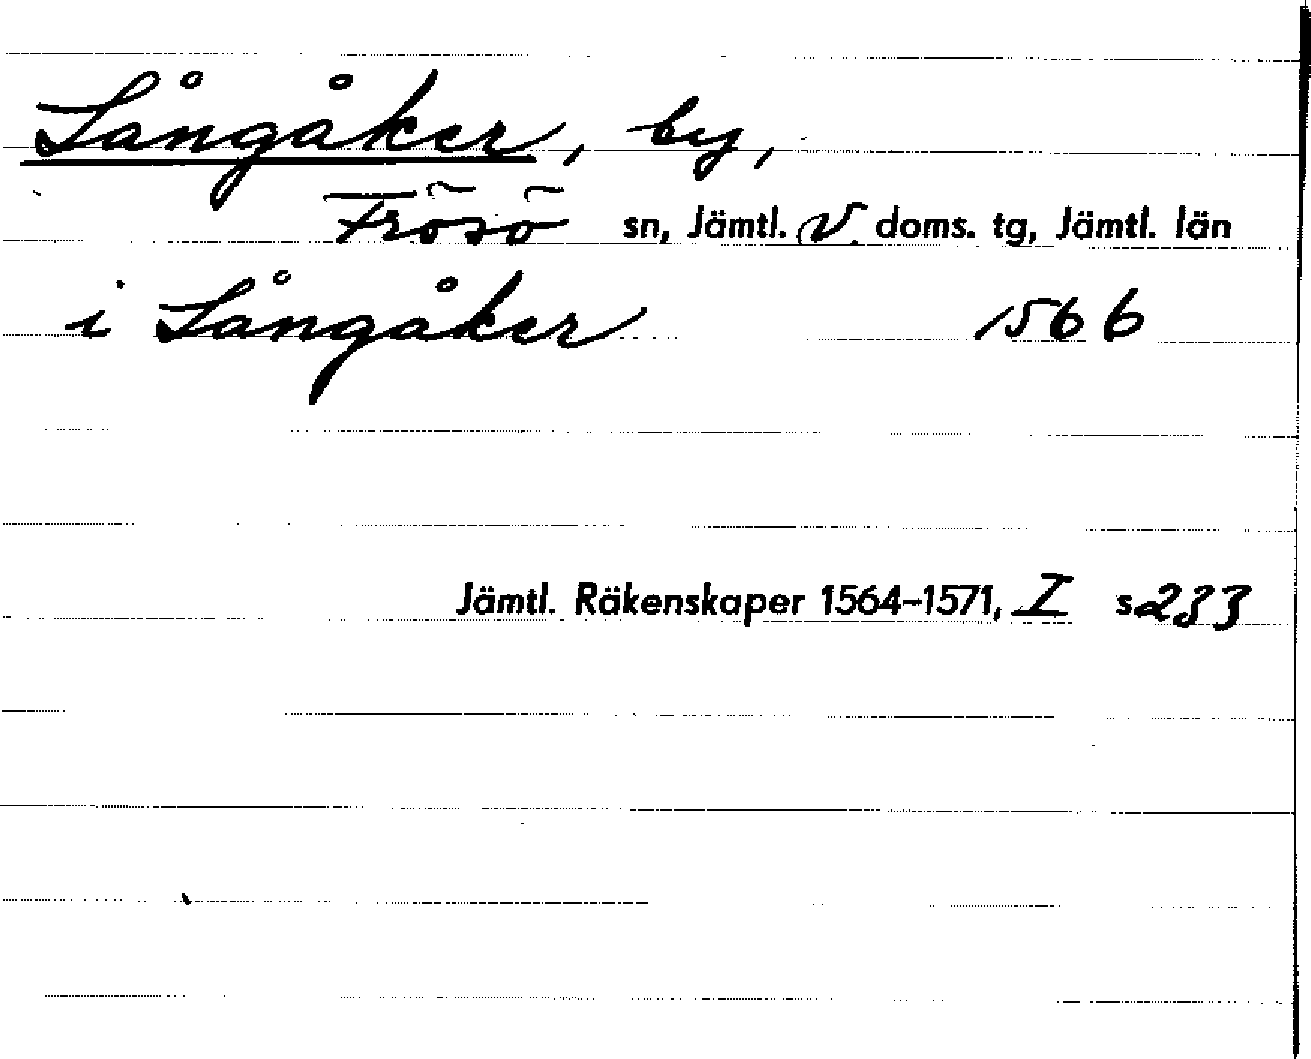 Långåker, by,
Frösö sn, Jämtl. V. doms. tg, Jämtl. län
i Långåker 1566
Jämtl. Räkenskaper 1564-1571, I s 233